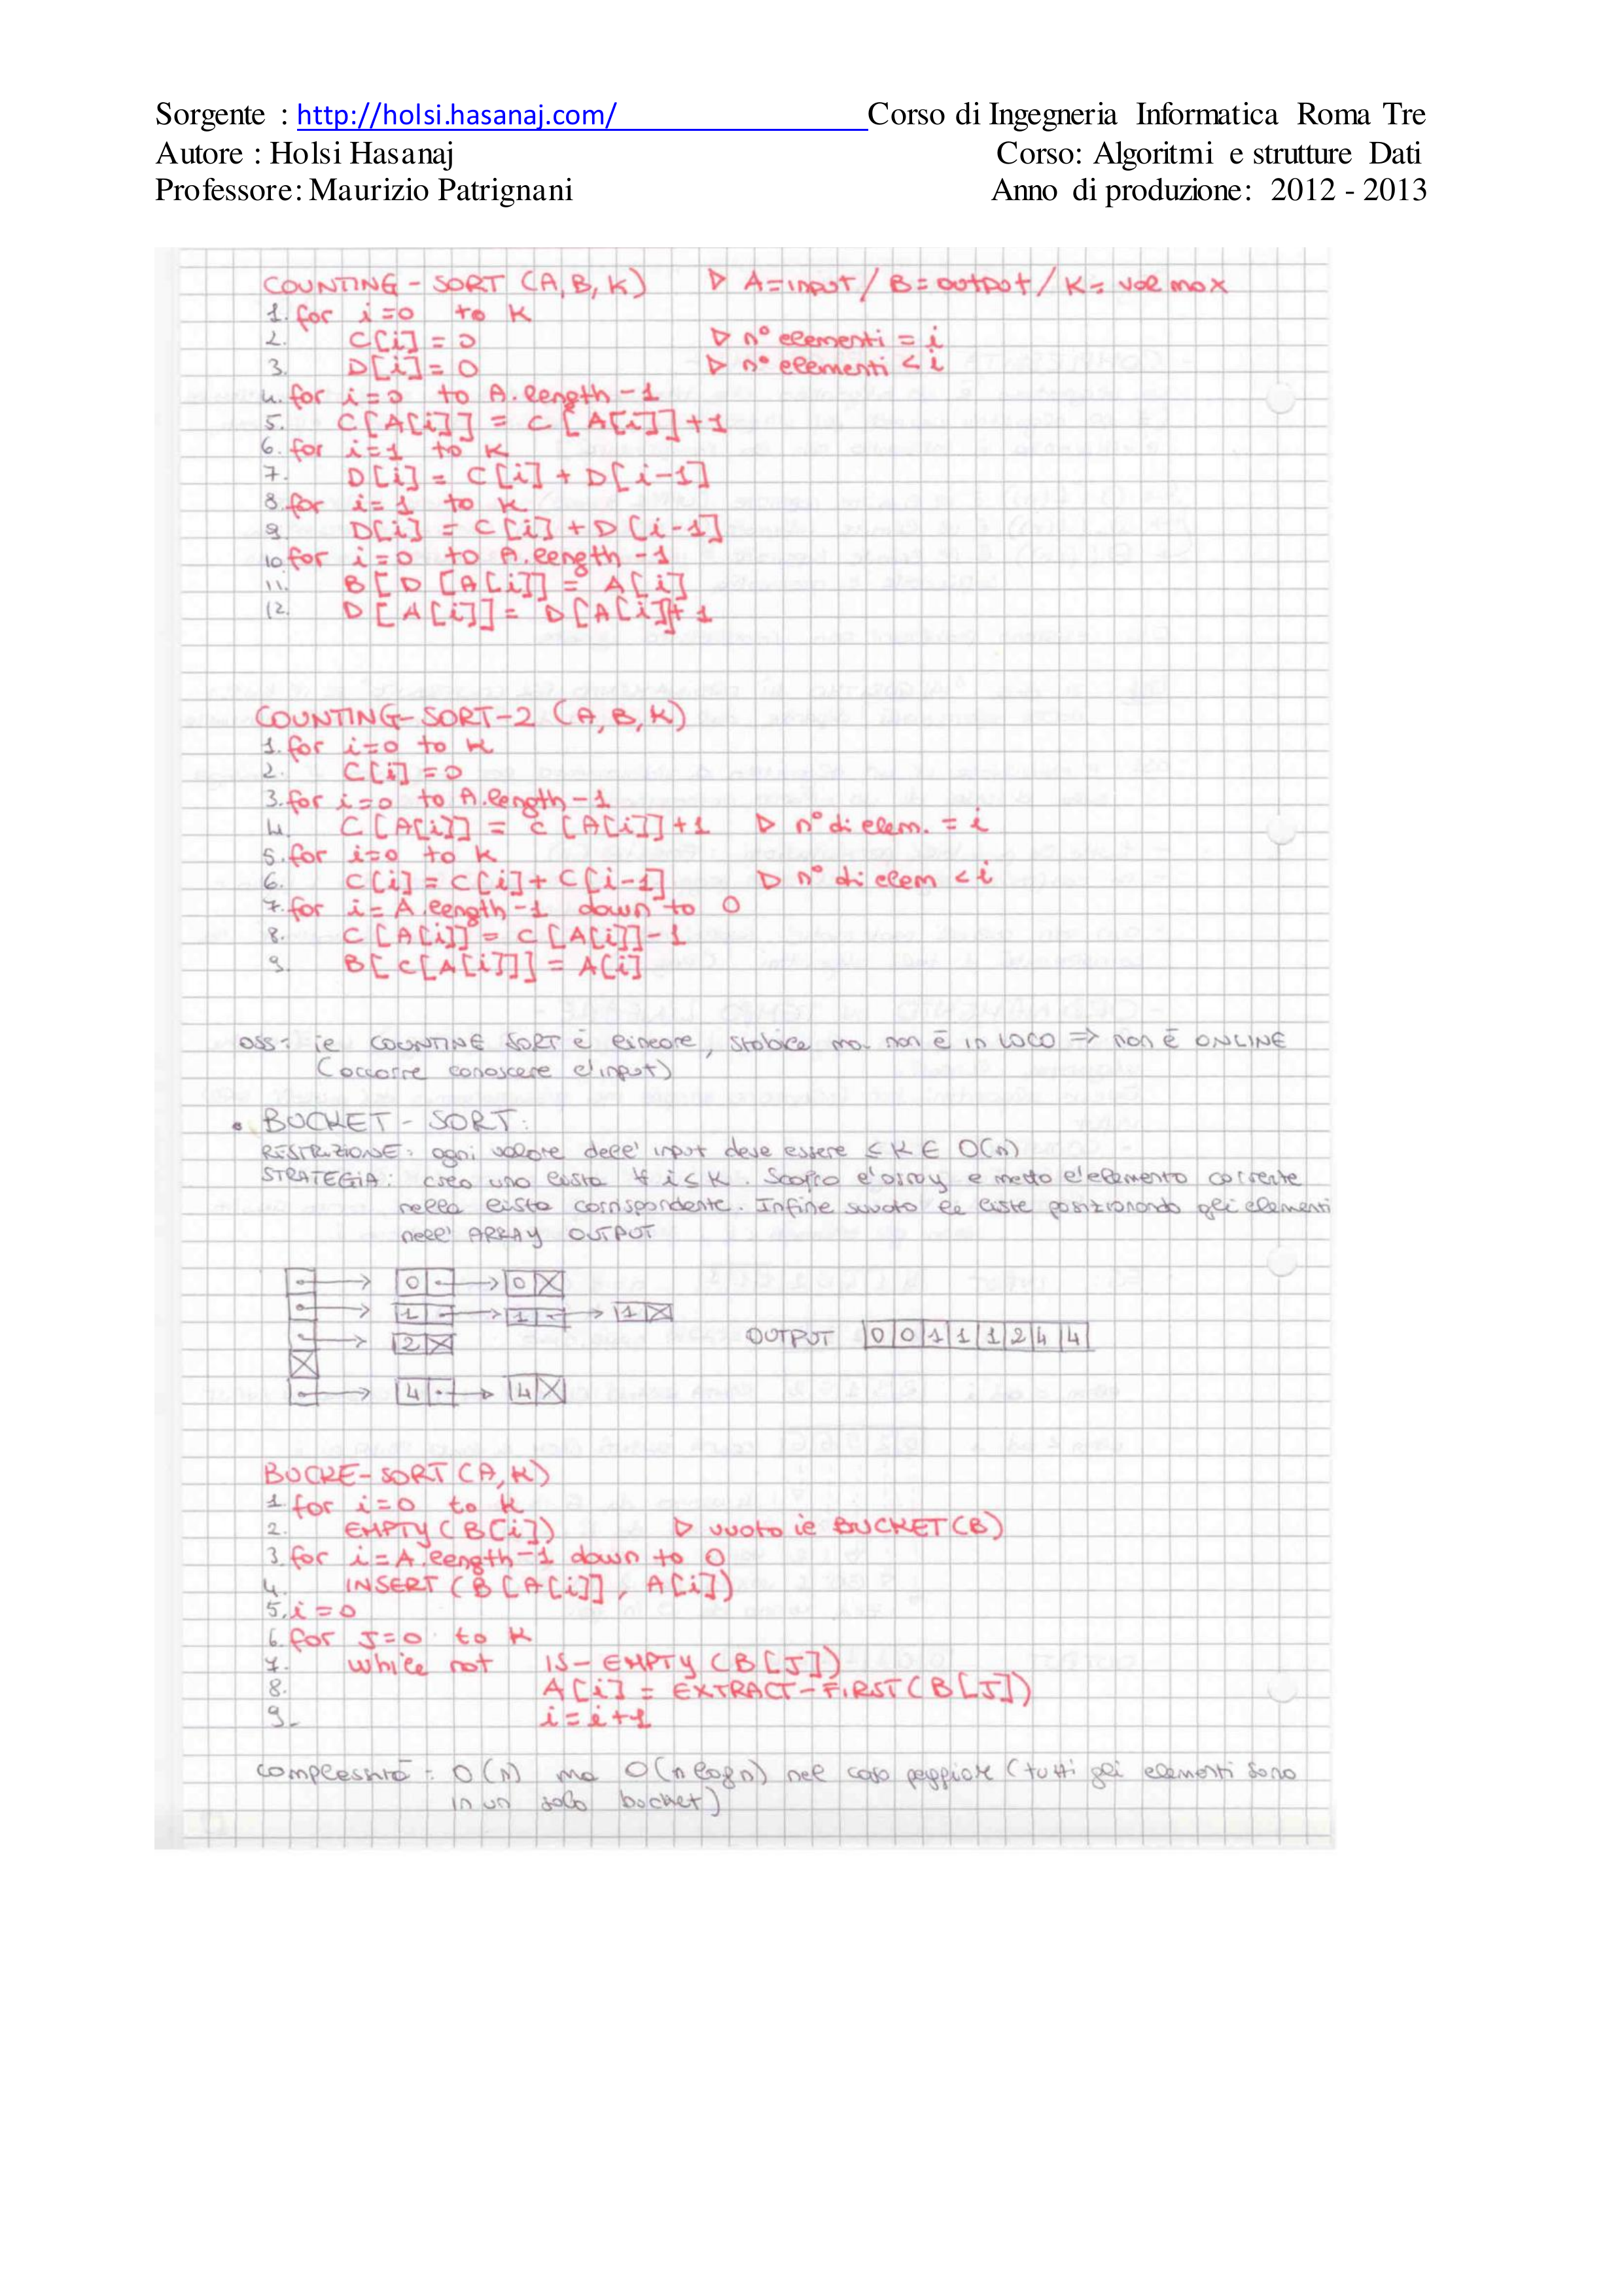 Sorgente : http://holsi.hasanaj.com/ Corso di Ingegneria Informatica Roma Tre
Autore : Holsi Hasanaj Corso: Algoritmi e strutture Dati
Professore: Maurizio Patrignani Anno di produzione: 2012 - 2013
COUNTING - SORT (A, B, K) ▷ A=input / B=output / K= val max
1. for i=0 to K
2. C[i] = 0 ▷ n° elementi = i
3. D[i] = 0 ▷ n° elementi < i
4. for i=0 to A.length-1
5. C[A[i]] = C[A[i]]+1
6. for i=1 to K
7. D[i] = C[i] + D[i-1]
8. for i=1 to K
9 D[i] = C[i] + D[i-1]
10 for i=0 to A.length-1
11. B[D[A[i]] = A[i]
12. D[A[i]] = D[A[i]]+1
COUNTING-SORT-2 (A, B, K)
1. for i=0 to K
2. C[i] = 0
3. for i=0 to A.length-1
4. C[A[i]] = C[A[i]]+1 ▷ n° di elem. = i
5. for i=0 to K
6. C[i] = C[i] + C[i-1] ▷ n° di elem < i
7. for i= A.length-1 down to 0
8. C[A[i]] = C[A[i]]-1
9. B[C[A[i]]] = A[i]
OSS: il COUNTING SORT è lineare, stabile ma non è in LOCO ⇒ non è ONLINE
(occorre conoscere l'input)
• BUCKET - SORT:
RESTRIZIONE: ogni valore dell' input deve essere ≤ K ∈ O(n)
STRATEGIA: creo una lista ∀ i≤K. Scorro l'array e metto l'elemento corrente
nella lista corrispondente. Infine svuoto le liste posizionando gli elementi
nell' ARRAY OUTPUT
0 0
1 1 1
2 OUTPUT 0 0 1 1 1 2 4 4
4 4
BUCKE-SORT (A, K)
1. for i=0 to K
2. EMPTY (B[i]) ▷ vuoto il BUCKET (B)
3. for i=A.length-1 down to 0
4. INSERT (B[A[i]], A[i])
5. i=0
6. for J=0 to K
7. while not IS-EMPTY (B[J])
8. A[i] = EXTRACT-FIRST (B[J])
9- i=i+1
complessità: O(n) ma O(n log n) nel caso peggiore (tutti gli elementi sono
in un solo bucket)